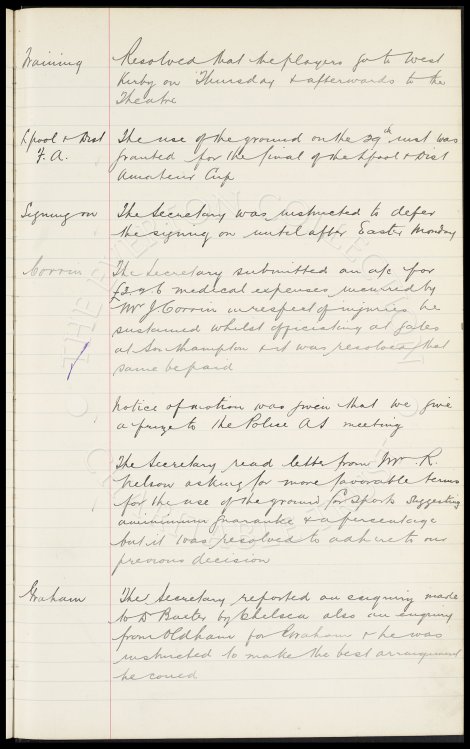 Training
Resolved that the players go to West
Kirby on Thursday & afterwards to the
Theatre
L'pool & Dist
F. A.
The use of the ground on the 29th inst was
granted for the final of the L'pool & Dist
Amateur Cup
Signing on
The Secretary was instructed to defer
the signing on until after Easter Monday
Corrin
The Secretary submitted an a/c for
£2.2.6 medical expenses incurred by
Mr J Corrin in respect of injuries he
sustained whilst officiating at gates
at Southampton & it was resolved that
same be paid
Notice of motion was given that we give
a prize to the Police AS meeting
The Secretary read letter from Mr. R.
Nelson asking for more favorable terms
for the use of the ground for Sports suggesting
a minimum guarantee & a percentage
but it was resolved to adhere to our
previous decision
Graham
The Secretary reported an enquiry made
to Dr Baxter by Chelsea also an enquiry
from Oldham for Graham & he was
instructed to make the best arrangement
he could
THE EVERTON COLLECTION